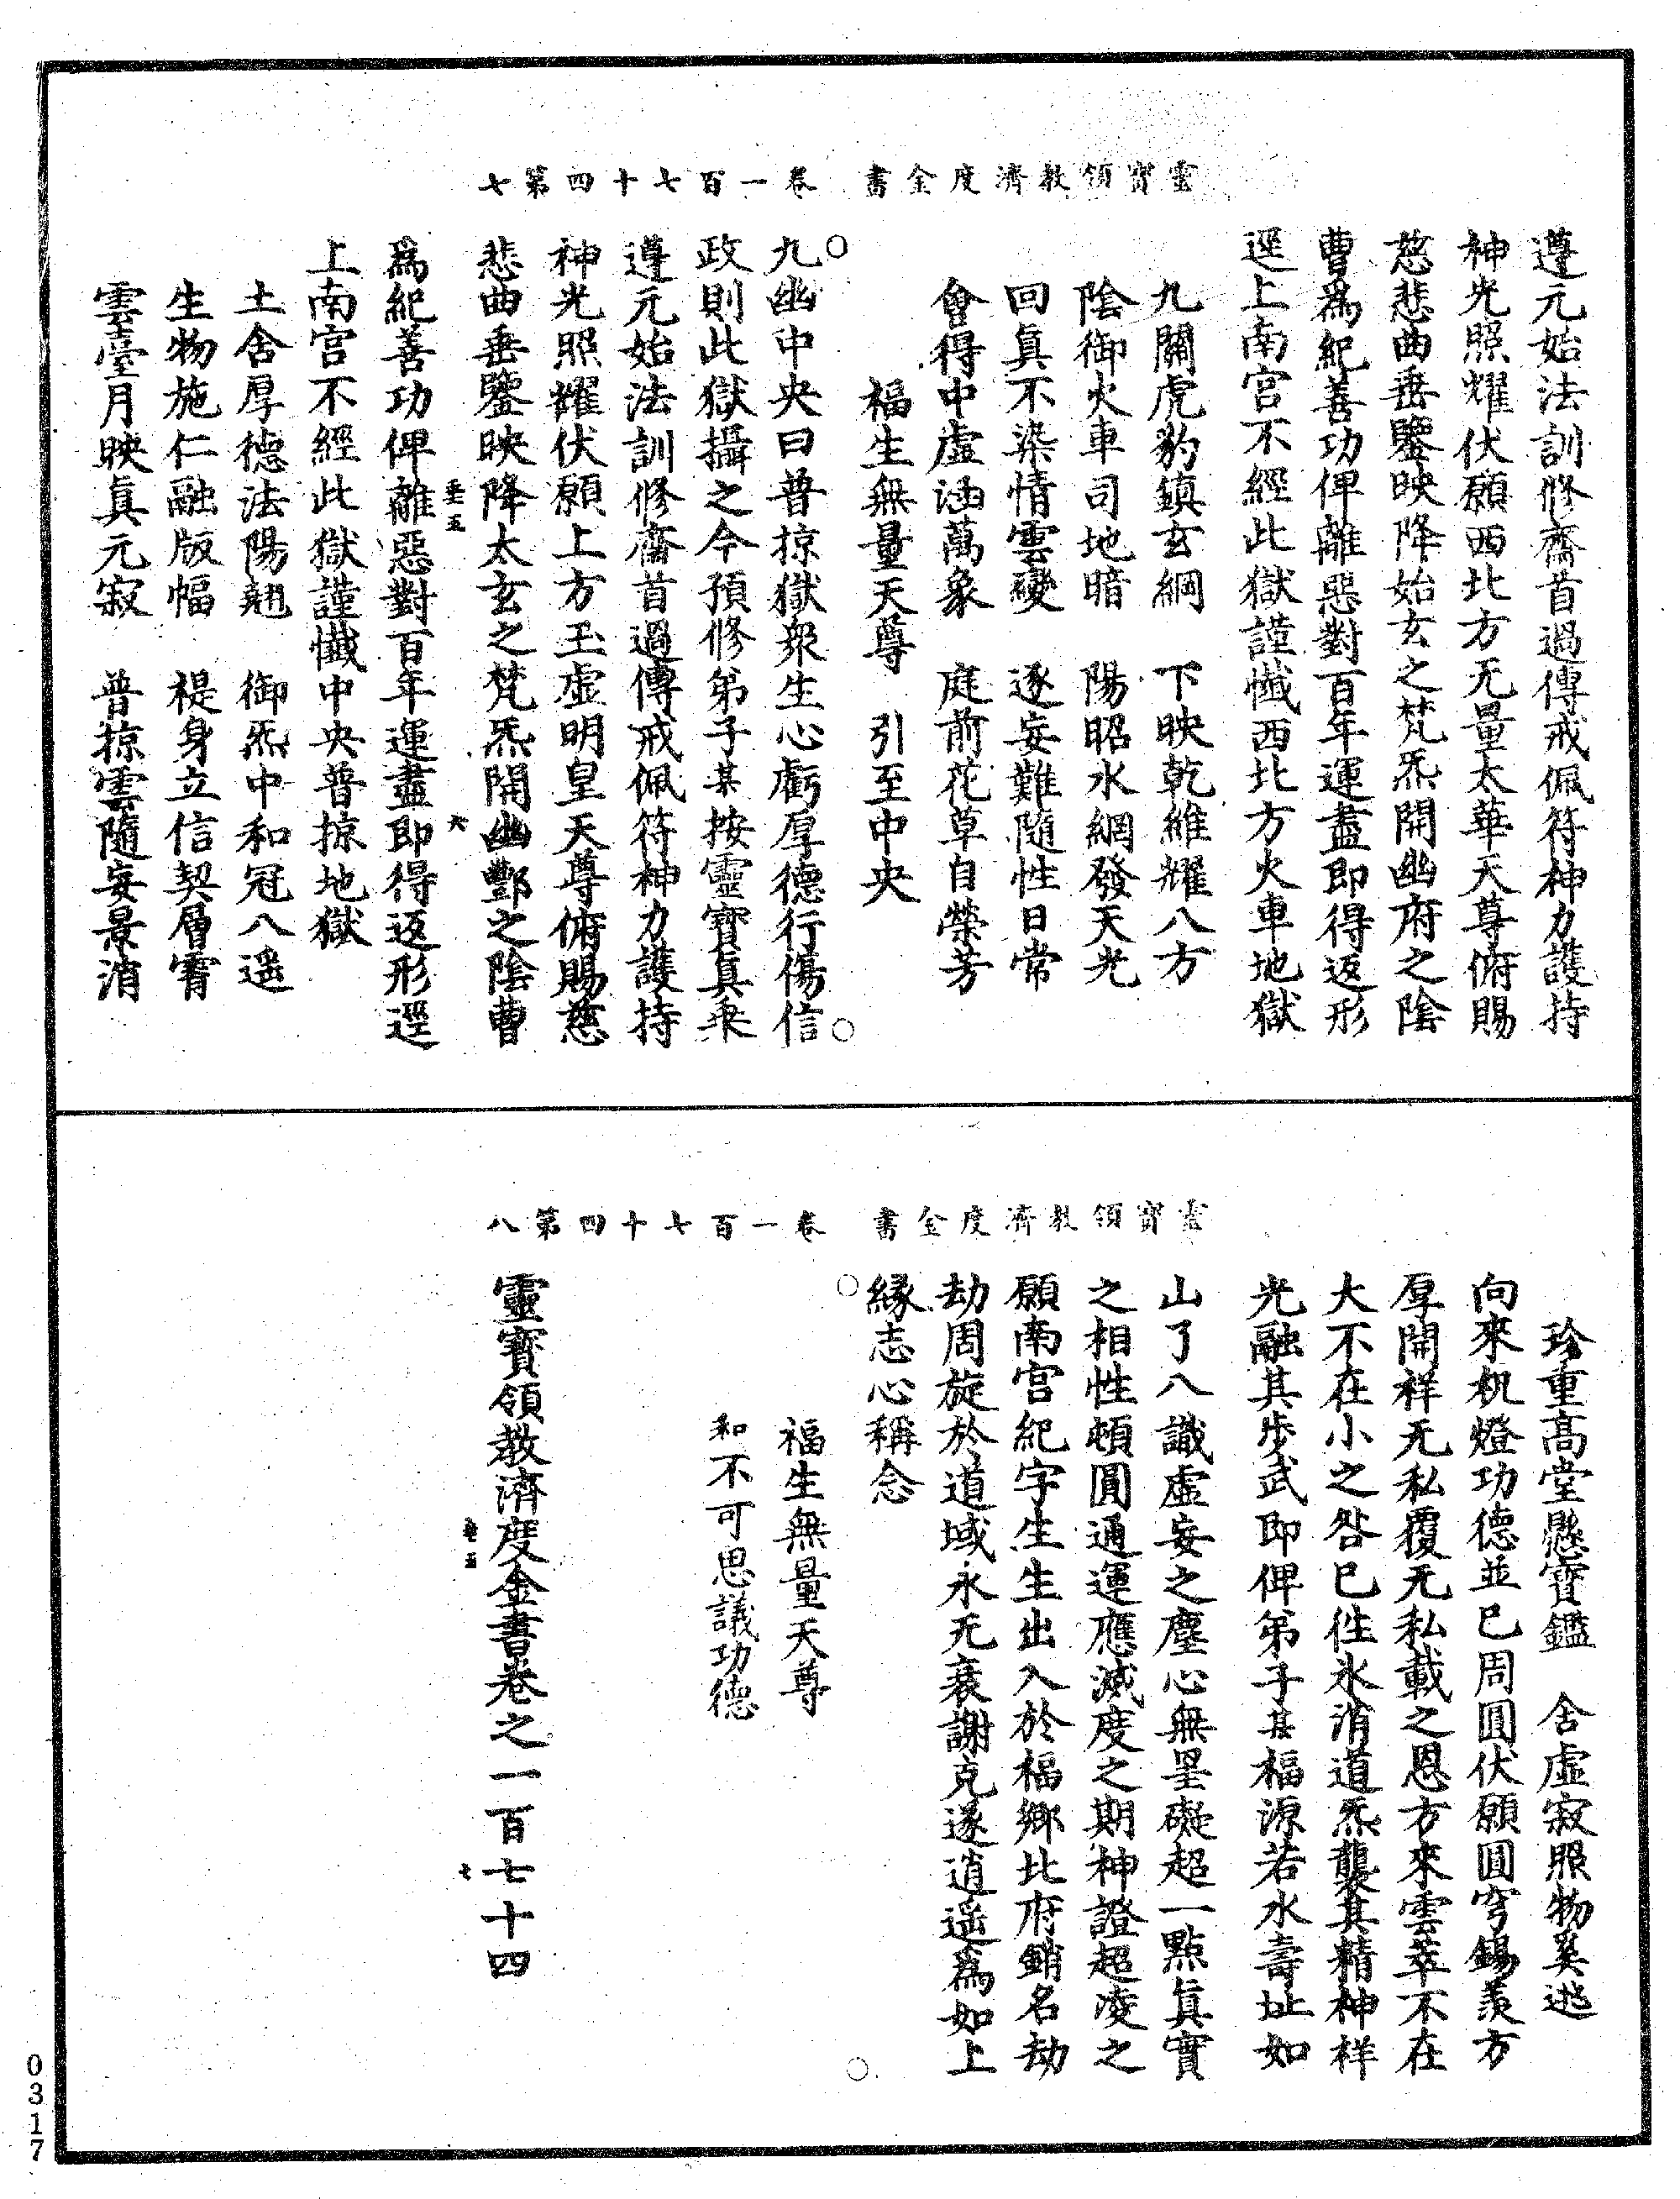 靈寶領教濟度金書　卷一百七十四第七
遵元始法訓修齋首過傳戒佩符神力護持
神光照耀伏願西北方无量太華天尊俯賜
慈悲曲垂鑒映降始玄之梵炁開幽府之陰
曹爲紀善功俾離惡對百年運盡即得返形
逕上南宮不經此獄謹懺西北方火車地獄
九關虎豹鎮玄綱　下映乾維耀八方
陰御火車司地暗　陽昭水網發天光
回眞不染情雲變　逐妄難隨性日常
會得中虛涵萬象　庭前花草自榮芳
福生無量天尊　引至中央
九幽中央曰普掠獄衆生心虧厚德行傷信
政則此獄攝之今預修弟子某按靈寶眞乘
遵元始法訓修齋首過傳戒佩符神力護持
神光照耀伏願上方玉虛明皇天尊俯賜慈
悲曲垂鑒映降太玄之梵炁開幽酆之陰曹
垂五　六
爲紀善功俾離惡對百年運盡即得返形逕
上南宮不經此獄謹懺中央普掠地獄
土舍厚德法陽翹　御炁中和冠八遥
生物施仁融版幅　禔身立信契層霄
雲臺月映眞元寂　普掠雲隨妄景消
靈寶領教濟度金書　卷一百七十四第八
珍重高堂懸寶鑑　含虛寂照物奚逃
向來机燈功德並已周圓伏願圓穹錫羨方
厚開祥无私覆无私載之恩方來雲萃不在
大不在小之咎已徃氷消道炁襲其精神祥
光融其步武即俾弟子某福源若水壽址如
山了八識虛妄之塵心無罣礙超一點眞實
之相性頓圓通運應滅度之期神證超凌之
願南宮紀字生生出入於福鄉北府銷名劫
劫周旋於道域永无衰謝克遂逍遥爲如上
緣志心稱念
福生無量天尊
和不可思議功德
靈寶領教濟度金書卷之一百七十四
七
0317